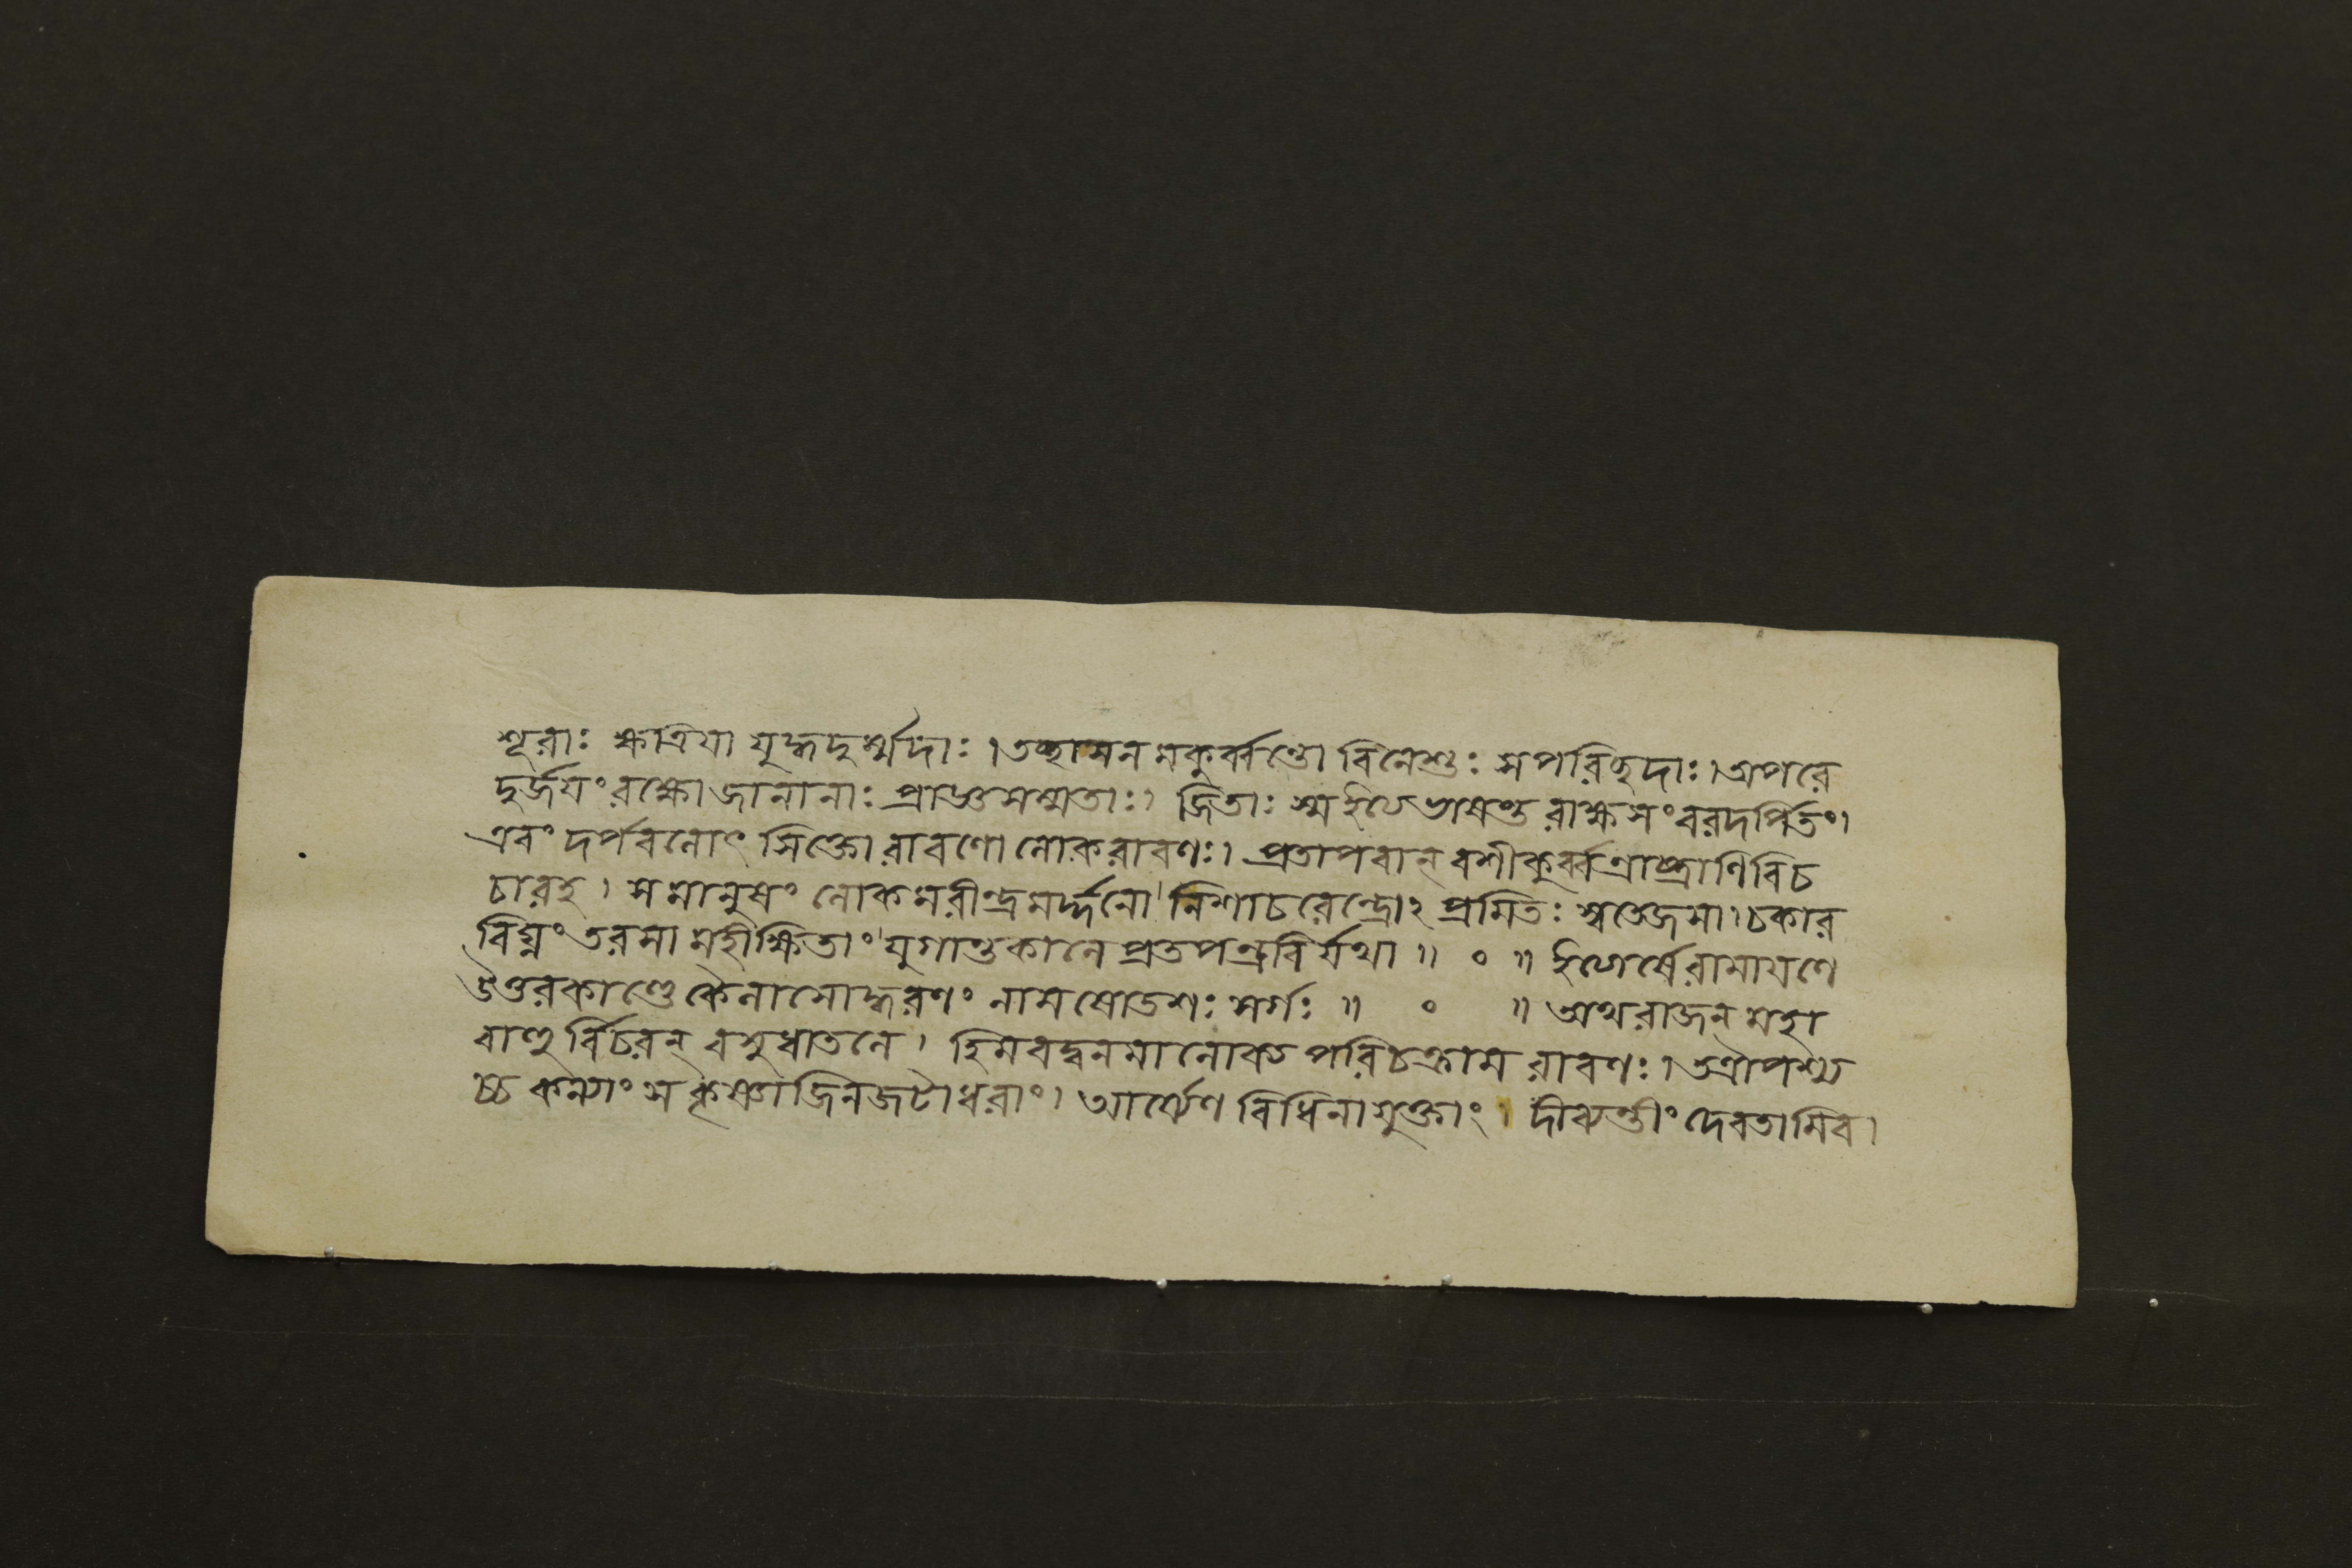 শূরাঃ ক্ষত্রিয়া যুদ্ধদুর্ম্মদাঃ।তচ্ছাসনমকুর্ব্বন্তো বিনেশুঃ সপরিচ্ছদাঃ।অপরে
দুর্জয়ং রক্ষো জানানাঃ প্রাজ্ঞসম্মতাঃ। জিতাঃ স্ম ইত্যভাষন্ত রাক্ষসং বরদর্পিতং।
এবং দর্পবলোৎ সিক্তো রাবণো লোকরাবণঃ। প্রতাপবান্ বশীকুর্ব্বণ্রাষ্ট্রাণি বিচ
চারহ। স মানুষং লোকমরীন্দ্রমর্দ্দনো নিশাচরেন্দ্রোঽ প্রমিতঃ স্বতেজসা।চকার
বিঘ্নং তরসা মহীক্ষিতাং যুগান্তকালে প্রতপন্ত্রবির্যথা॥ ০ ॥ ইত্যার্ষে রামায়ণে
উত্তরকাণ্ডে কৈলাসোদ্ধরণং নাম ষোডশঃ সর্গঃ॥ ০ ॥ অথ রাজন্ মহা
বাহু র্বিচরন্ বসুধাতলে। হিমবদ্বনমালোক্য পরিচক্রাম রাবণঃ।তত্রাপশ্য
চ্চ কন্যাং স কৃষ্ণাজিনজটাধরাং। আর্ষেণ বিধিনা যুক্তাং। দীব্যন্তীং দেবতামিব।